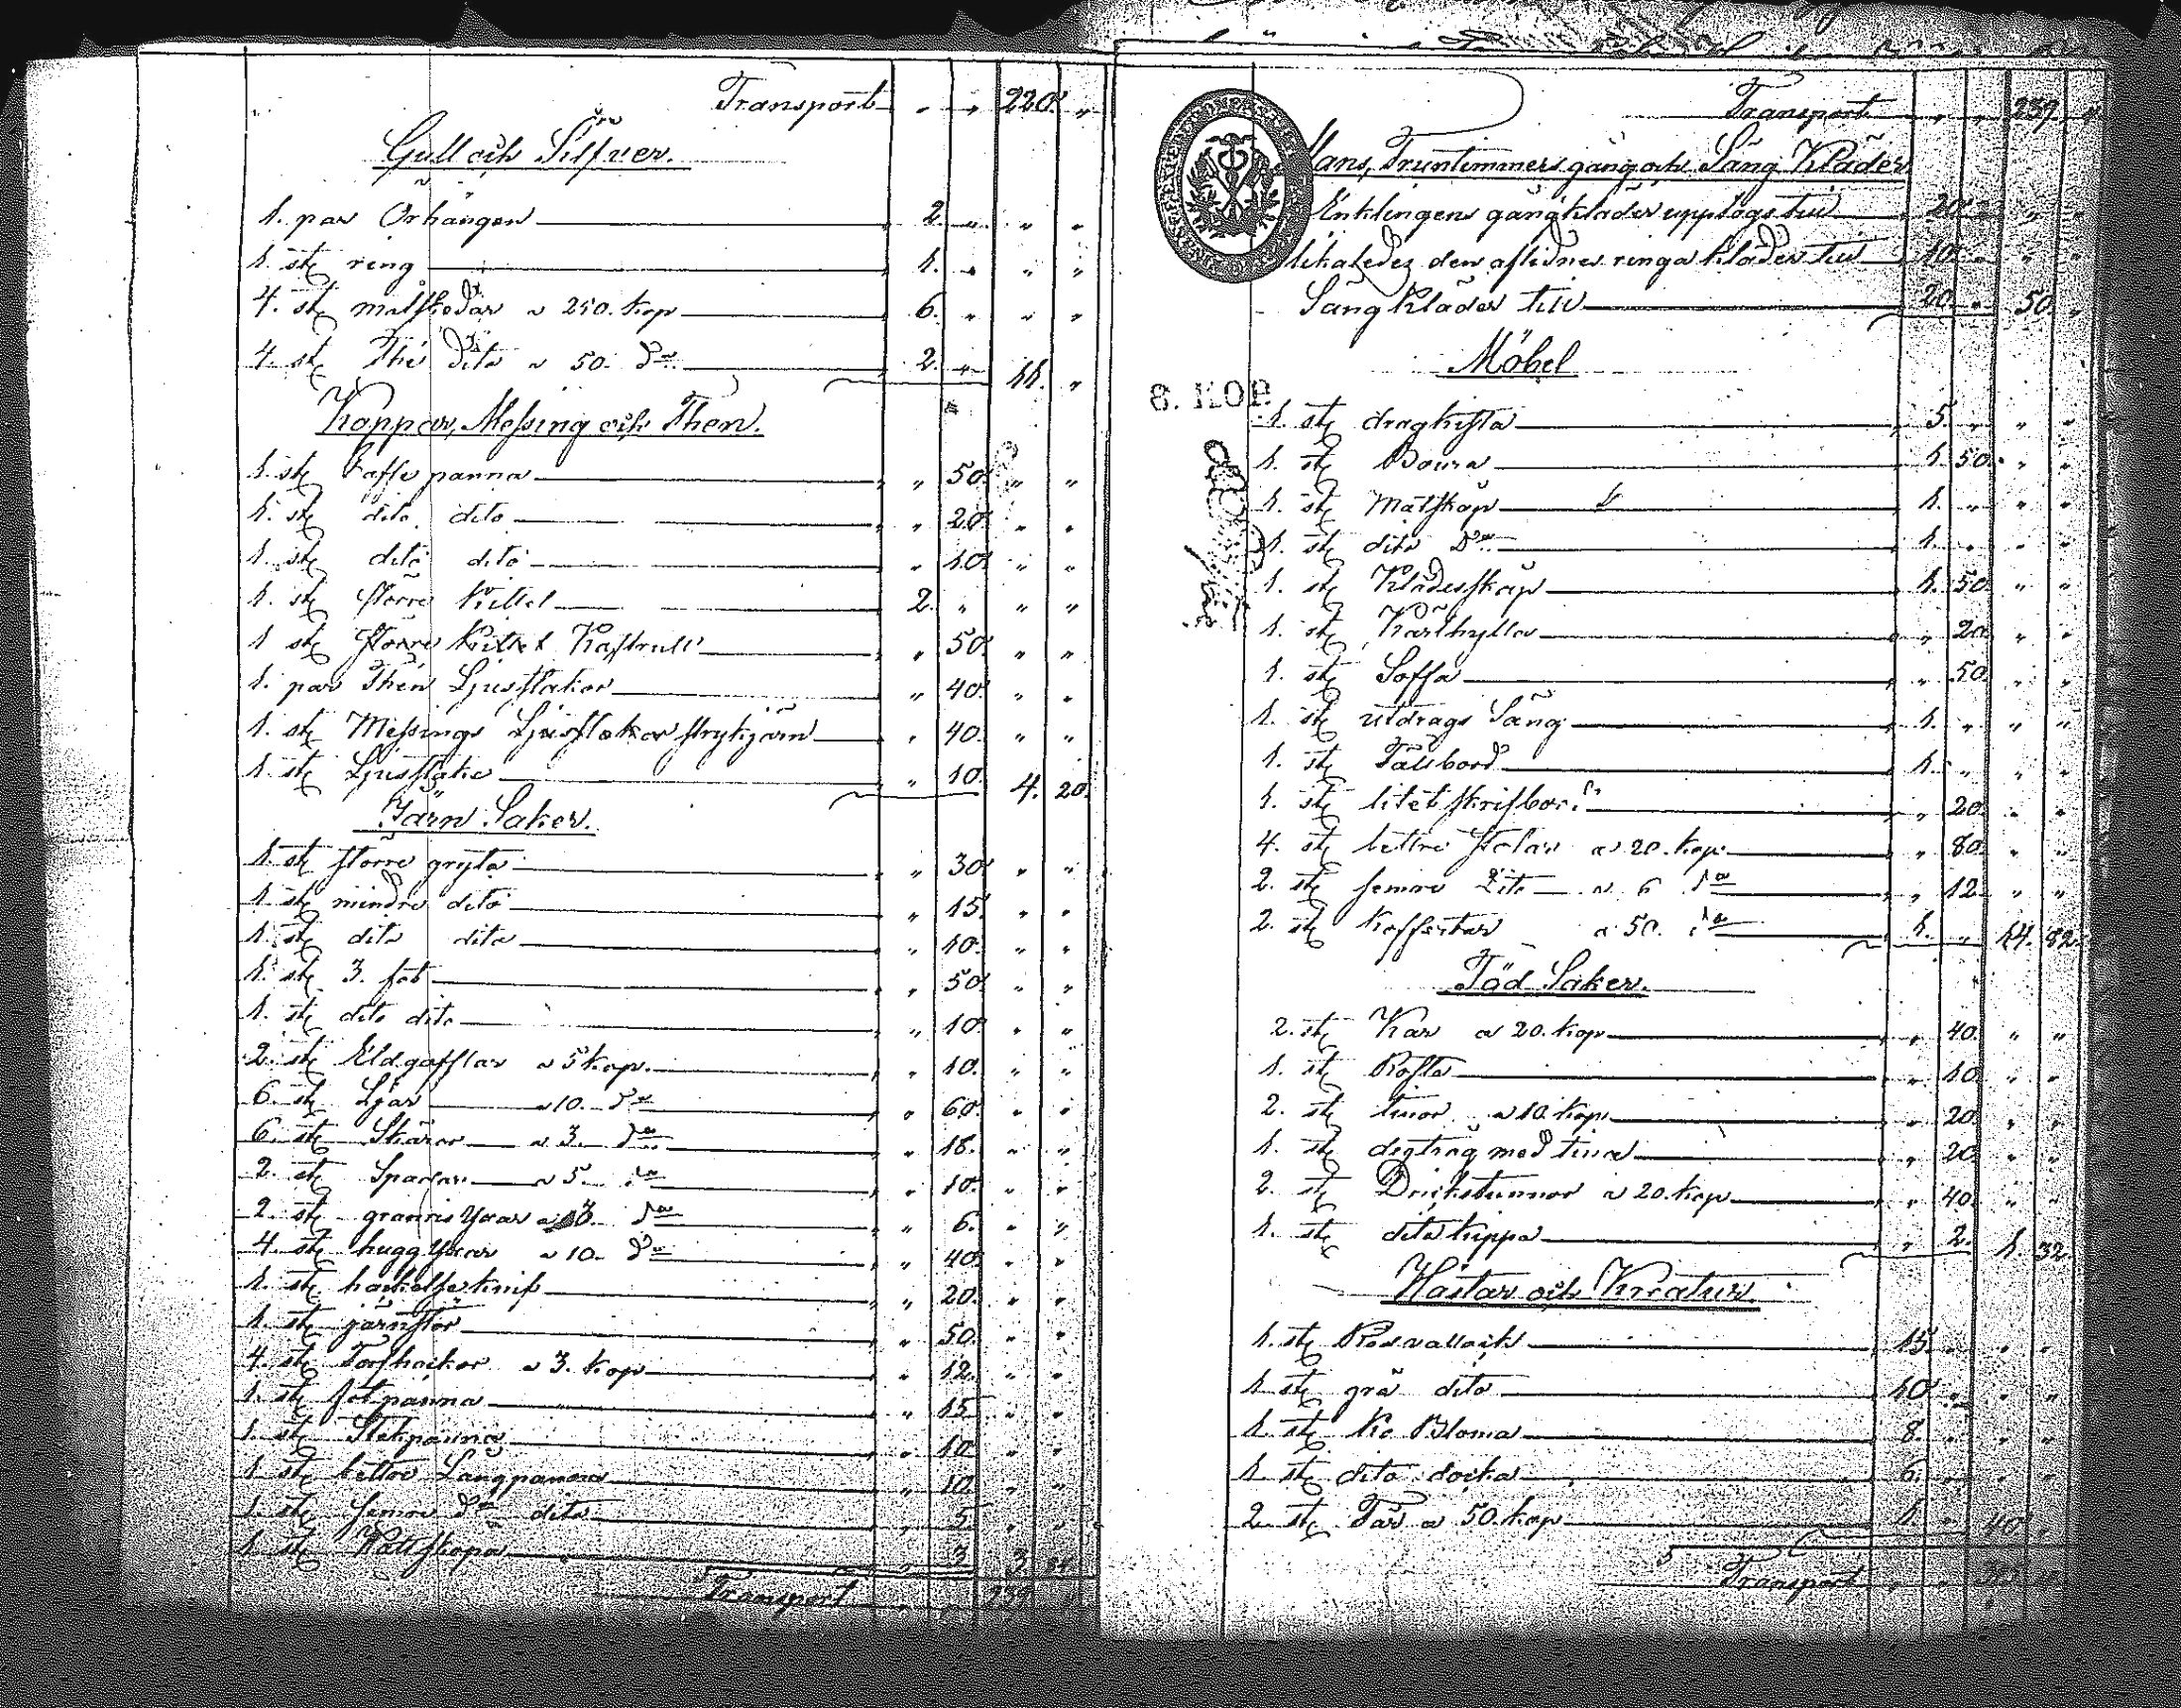 Transport „ „ 220. „
Gull och Silfver.
1. par Örhängen 2. „ „ „
1. st ring 1. „ „ „
4. st matskedar a 250. kop 6. „ „ „
4. st The dito a 50. Do 2. „ 11. „
Koppar, Messing och Then.
1. st Kaffe panna „ 50. „ „
1. st dito dito „ 20. „ „
1. st dito dito „ 10. „ „
1. st större Kittel 2. „ „ „
1 st större Kittel Kastrull „ 50. „ „
1. par Then Ljusstakar „ 40. „ „
1. st Messings Ljusstakar strykjärn „ 40. „ „
1. st Ljusstake „ 10. 4. 20.
Järn Saker.
1. st större gryta „ 30. „ „
1. st mindre dito „ 15. „ „
1. st dito dito „ 10. „ „
1. st 3. fot „ 50. „ „
1. st dito dito „ 10. „ „
2. st Eldgafflar a 5 kop. „ 10. „ „
6. st Ljar a 10. Do „ 60. „ „
6. st Skäror a 3. Do „ 18. „ „
2. st Spadar a 5. Do „ 10. „ „
2. st grannis Yxar a 3. Do „ 6. „ „
4. st hugg Yxar a 10. Do „ 40. „ „
1. st hackelse knif „ 20. „ „
1. st järnstör „ 50. „ „
4. st Torfhackor a 3. kop „ 12. „ „
1. st fotpanna „ 15. „ „
1. st Stekpanna „ 10. „ „
1. st bettre Långpanna „ 10. „ „
1. st semre Do dito „ 5. „ „
1. st Wattskopa „ 3 3.
Transport „ „ 239
Transport „ „ 239 „
Mans, Fruntimmers gång och Säng Kläder
Enklingens gångkläder upptogs till 20. „ „ „
likaledes den aflidnes ringa kläder till 10. „ „ „
Sängkläder till 20. „ 50. „
Möbel
8. KOP.
1. st dragkista 5. „ „ „
1. st Boura 1. 50. „ „
1. st Matskåp 1. „ „ „
1. st dito Do 1. „ „ „
1. st Klädesskåp 1. 50. „ „
1. st Kärlhylla „ 20. „ „
1. st Soffa „ 50. „ „
1. st utdrags Säng 1. „ „ „
1. st Fälsbord 1. „ „ „
1. st litet skrifbord „ 20. „ „
4. st bettre stolar a 20. kop. „ 80. „ „
2. st semre Dito a 6 Do „ 12. „ „
2. st Koffertar a 50. Do 1. „ 14. 82.
Töd Saker.
2. st Kar a 20. kop „ 40. „ „
1. st Rosta „ 10. „ „
2. st tinor a 10. kop. „ 20. „ „
1. st degtråg med tina „ 20. „ „
2. st Drickstunnor a 20. kop „ 40. „ „
1. st dito kippa „ 2. 1. 32.
Hästar och Kreatur.
1. st Röd vallack 15. „ „ „
1. st grå dito 10. „ „ „
1. st Ko Bloma 8. „ „ „
1. st dito docka 6. „ „ „
2. st Får a 50. kop 1. „ 40. „
Transport „ „